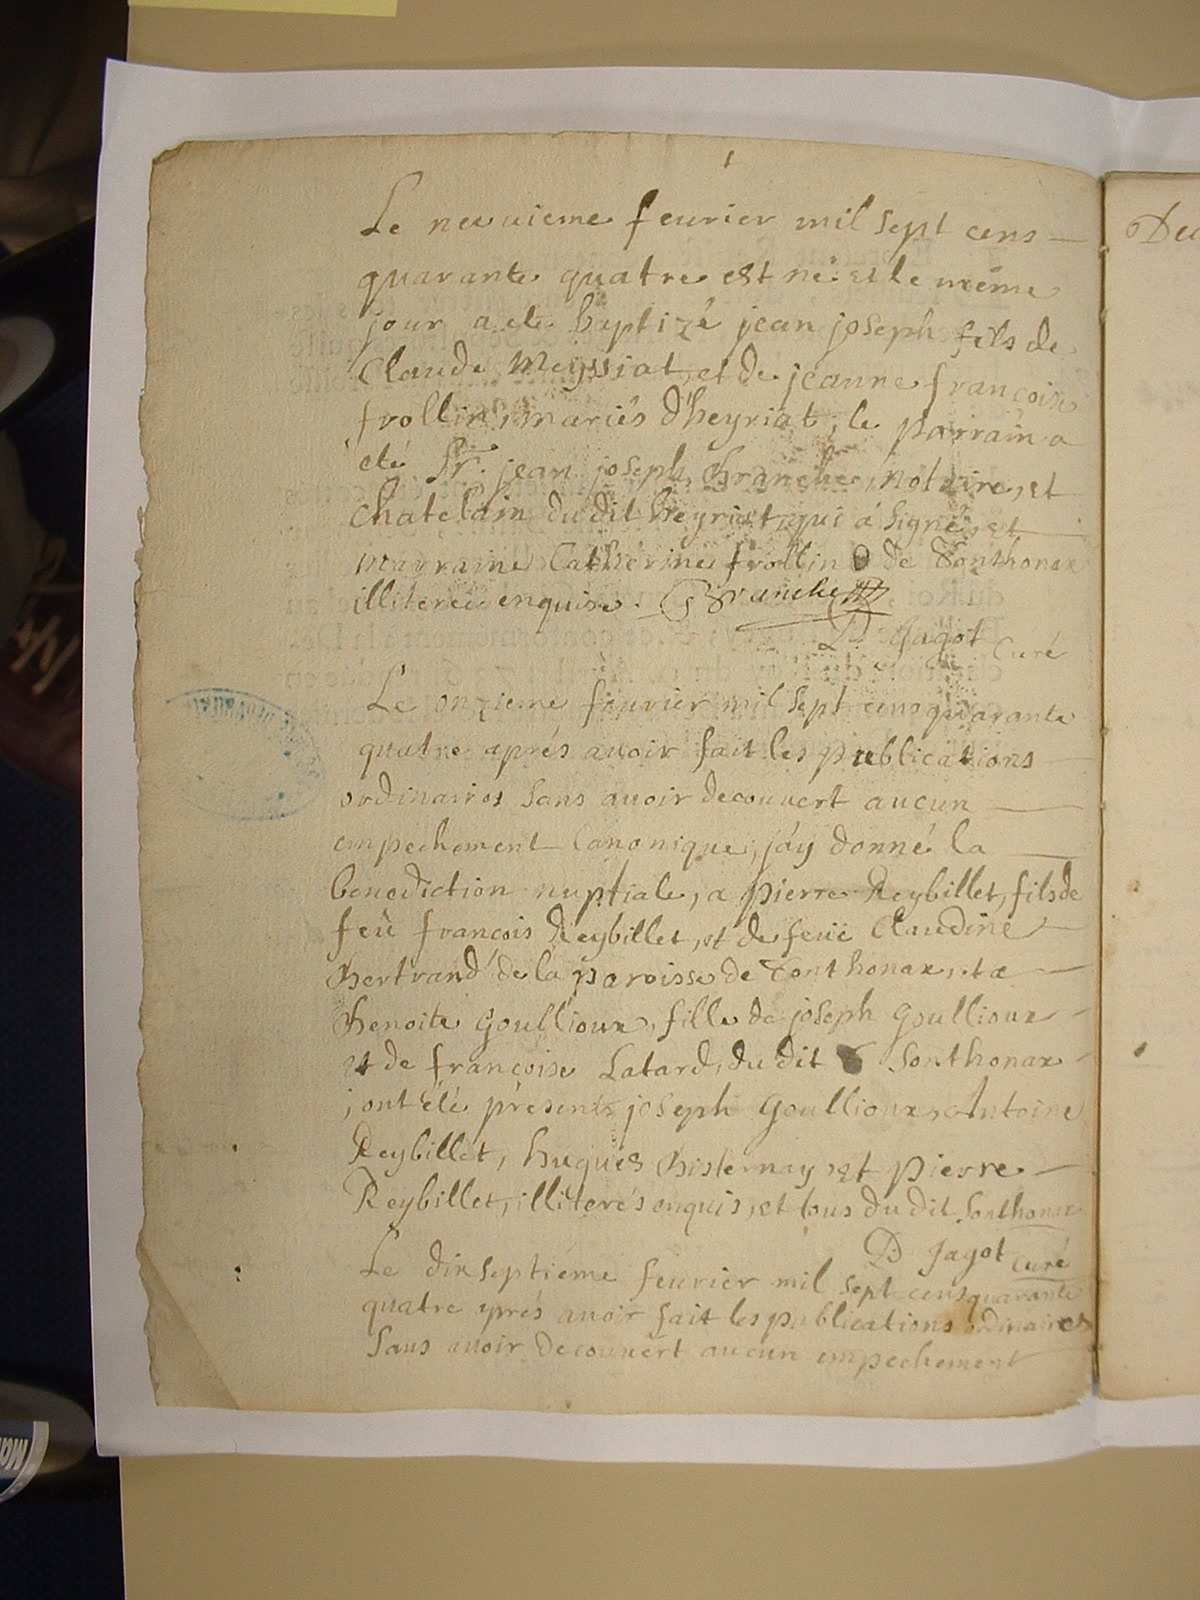 Le neuuieme feurier mil sept cens
quarante quatre est né et le méme
jour a eté baptizé jean joseph fils de
Claude Meyssiat, et de jeanne françoise
frollin, mariés d'heyriat, le parrain a
eté Sr. jean joseph Branche, notaire, et
Chatelain du dit heyriat, qui á signé, et
marraine Catherine frollin de Sonthonax
illiterée enquise. Branche
D. Jagot Curé
Le onzieme feurier mil sept cens quarante
quatre aprés auoir fait les publications
ordinaires sans auoir decouuert aucun
empechement Canonique, j'áy donné la
benediction nuptiale, a pierre Reybillet, fils de
feü françois Reybillet, et de feuë Claudine
Bertrand de la paroisse de Sonthonax, et a
Benoite Goullioux, fille de joseph Goullioux
et de françoise Latard, du dit Sonthonax
, ont été présents joseph Goullioux, Antoine
Reybillet, hugues Bisternay, et pierre
Reybillet, illiterés enquis, et tous du dit Sonthonax
D. Jagot Curé
Le dixseptiéme feurier mil sept cens quarante
quatre aprés auoir fait les publications ordinaires
Sans auoir decouuert aucun empechement